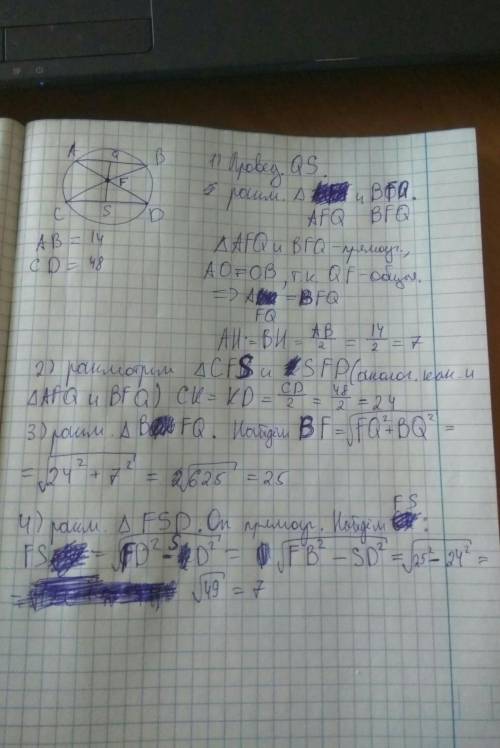 A Q B
F
C S D
AB = 14
CD = 48
1) Провед. QS.
рассм. Δ и BFQ.
AFQ BFQ
ΔAFQ и BFQ-прямоуг.,
AO=OB, т.к QF-общая.
=> A = BFQ
FQ
AH = BH = AB/2 = 14/2 = 7
2) рассмотрим ΔCFS и SFD (аналог. как и
ΔAFQ и BFQ) CK = KD = CD/2 = 48/2 = 24
3) рассм. ΔB FQ. Найдём BF = √FQ² + BQ² =
= √24² + 7² = 2√625 = 25
4) рассм. Δ FSD. Он прямоуг. Найдём FS:
FS = √FD² - SD² = √FB² - SD² = √25² - 24² =
= √49 = 7